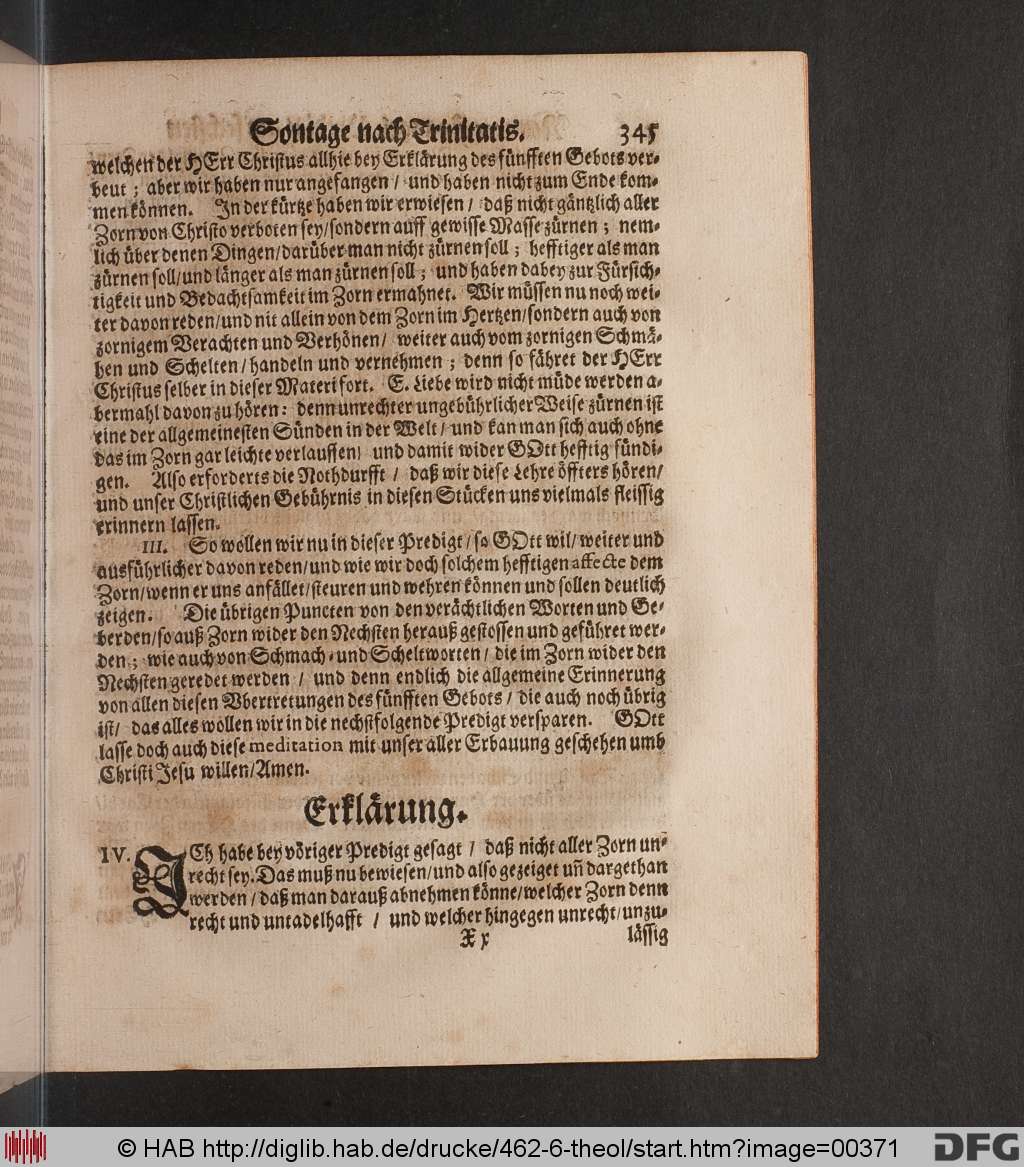 Sontage nach Trinitatis. 345
welchen der HErr Christus allhie bey Erklärung des fünfften Gebots ver-
beut; aber wir haben nur angefangen / und haben nicht zum Ende kom-
men können. In der kürtze haben wir erwiesen / daß nicht gäntzlich aller
Zorn von Christo verboten sey/sondern auff gewisse Masse zürnen; nem-
lich über denen Dingen/darüber man nicht zürnen soll; hefftiger als man
zürnen soll/und länger als man zürnen soll; und haben dabey zur Fürsich-
tigkeit und Bedachtsamkeit im Zorn ermahnet. Wir müssen nu noch wei-
ter davon reden/und nit allein von dem Zorn im Hertzen/sondern auch von
zornigem Verachten und Verhönen/ weiter auch vom zornigen Schmä-
hen und Schelten/handeln und vernehmen; denn so fähret der HErr
Christus selber in dieser Materi fort. E. Liebe wird nicht müde werden a-
bermahl davon zu hören: denn unrechter ungebührlicher Weise zürnen ist
eine der allgemeinesten Sünden in der Welt/ und kan man sich auch ohne
das im Zorn gar leichte verlauffen/ und damit wider GOtt hefftig sündi-
gen. Also erforderts die Nothdurfft / daß wir diese Lehre öffters hören/
und unser Christlichen Gebührnis in diesen Stücken uns vielmals fleissig
erinnern lassen.
III. So wollen wir nu in dieser Predigt/so GOtt wil/weiter und
ausführlicher davon reden/und wie wir doch solchem hefftigen affecte dem
Zorn/wenn er uns anfället/steuren und wehren können und sollen deutlich
zeigen. Die übrigen Puncten von den verächtlichen Worten und Ge-
berden/so auß Zorn wider den Nechsten herauß gestossen und geführet wer-
den; wie auch von Schmach-und Scheltworten/ die im Zorn wider den
Nechsten geredet werden / und denn endlich die allgemeine Erinnerung
von allen diesen Vbertretungen des fünfften Gebots / die auch noch übrig
ist/ das alles wollen wir in die nechstfolgende Predigt versparen. GOtt
lasse doch auch diese meditation mit unser aller Erbauung geschehen umb
Christi Jesu willen/Amen.
Erklärung.
IV. JCh habe bey vöriger Predigt gesagt / daß nicht aller Zorn un-
recht sey. Das muß nu bewiesen/und also gezeiget uñ dargethan
werden / daß man darauß abnehmen könne/welcher Zorn denn
recht und untadelhafft / und welcher hingegen unrecht/unzu-
Xx lässig
© HAB http://diglib.hab.de/drucke/462-6-theol/start.htm?image=00371 DFG